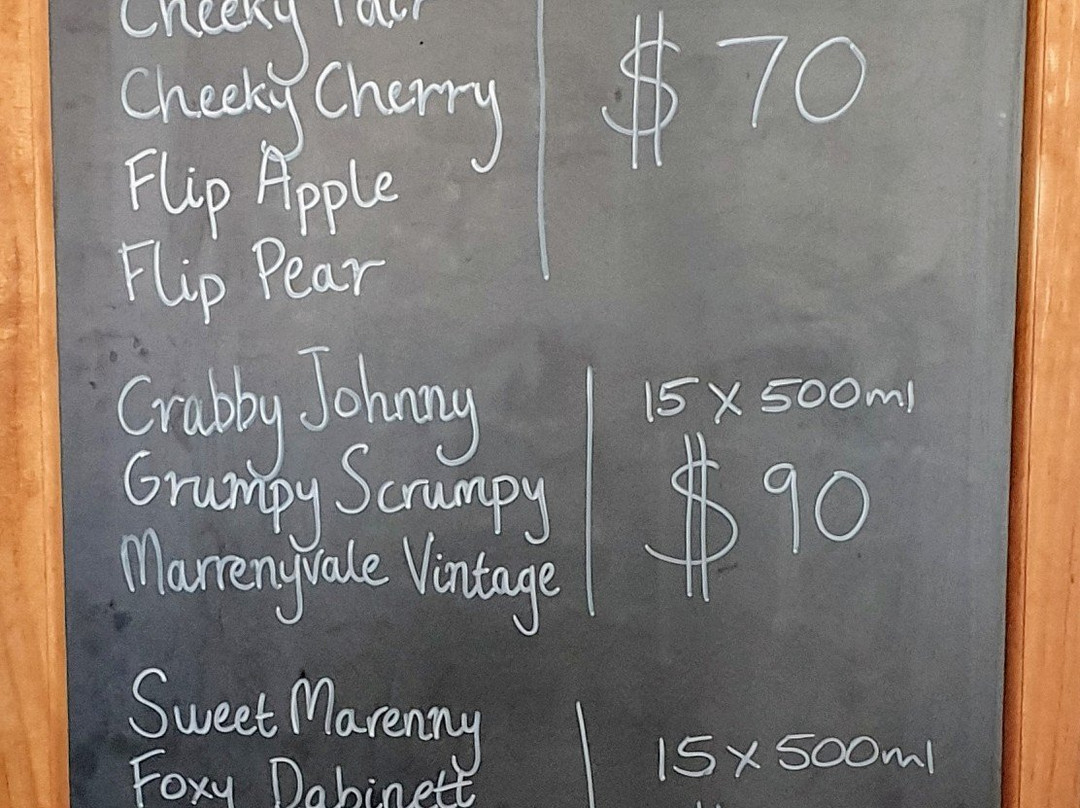 Cheeky
Cheeky Cherry
$ 70
Flip Apple
Flip Pear
Crabby Johnny
15 x 500ml
Grumpy Scrumpy
$ 90
Marrenyvale Vintage
Sweet Marenny
15 x 500ml
Foxy Dabinett